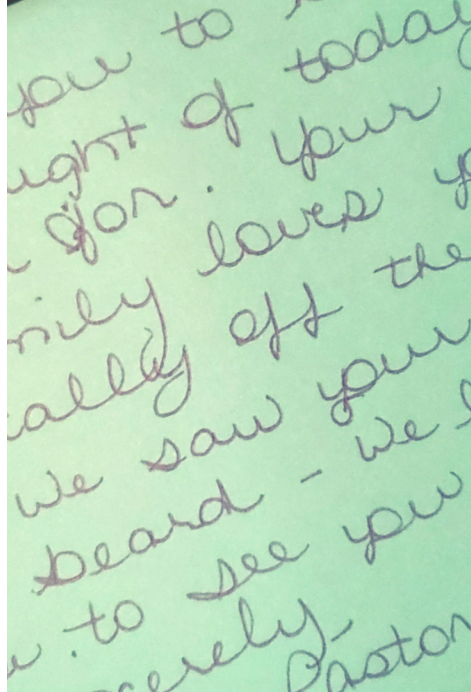 you to
ught of today
for. your
mily loves y
ally off the
we saw your
beard - we l
to see you
cerely,
Pastor